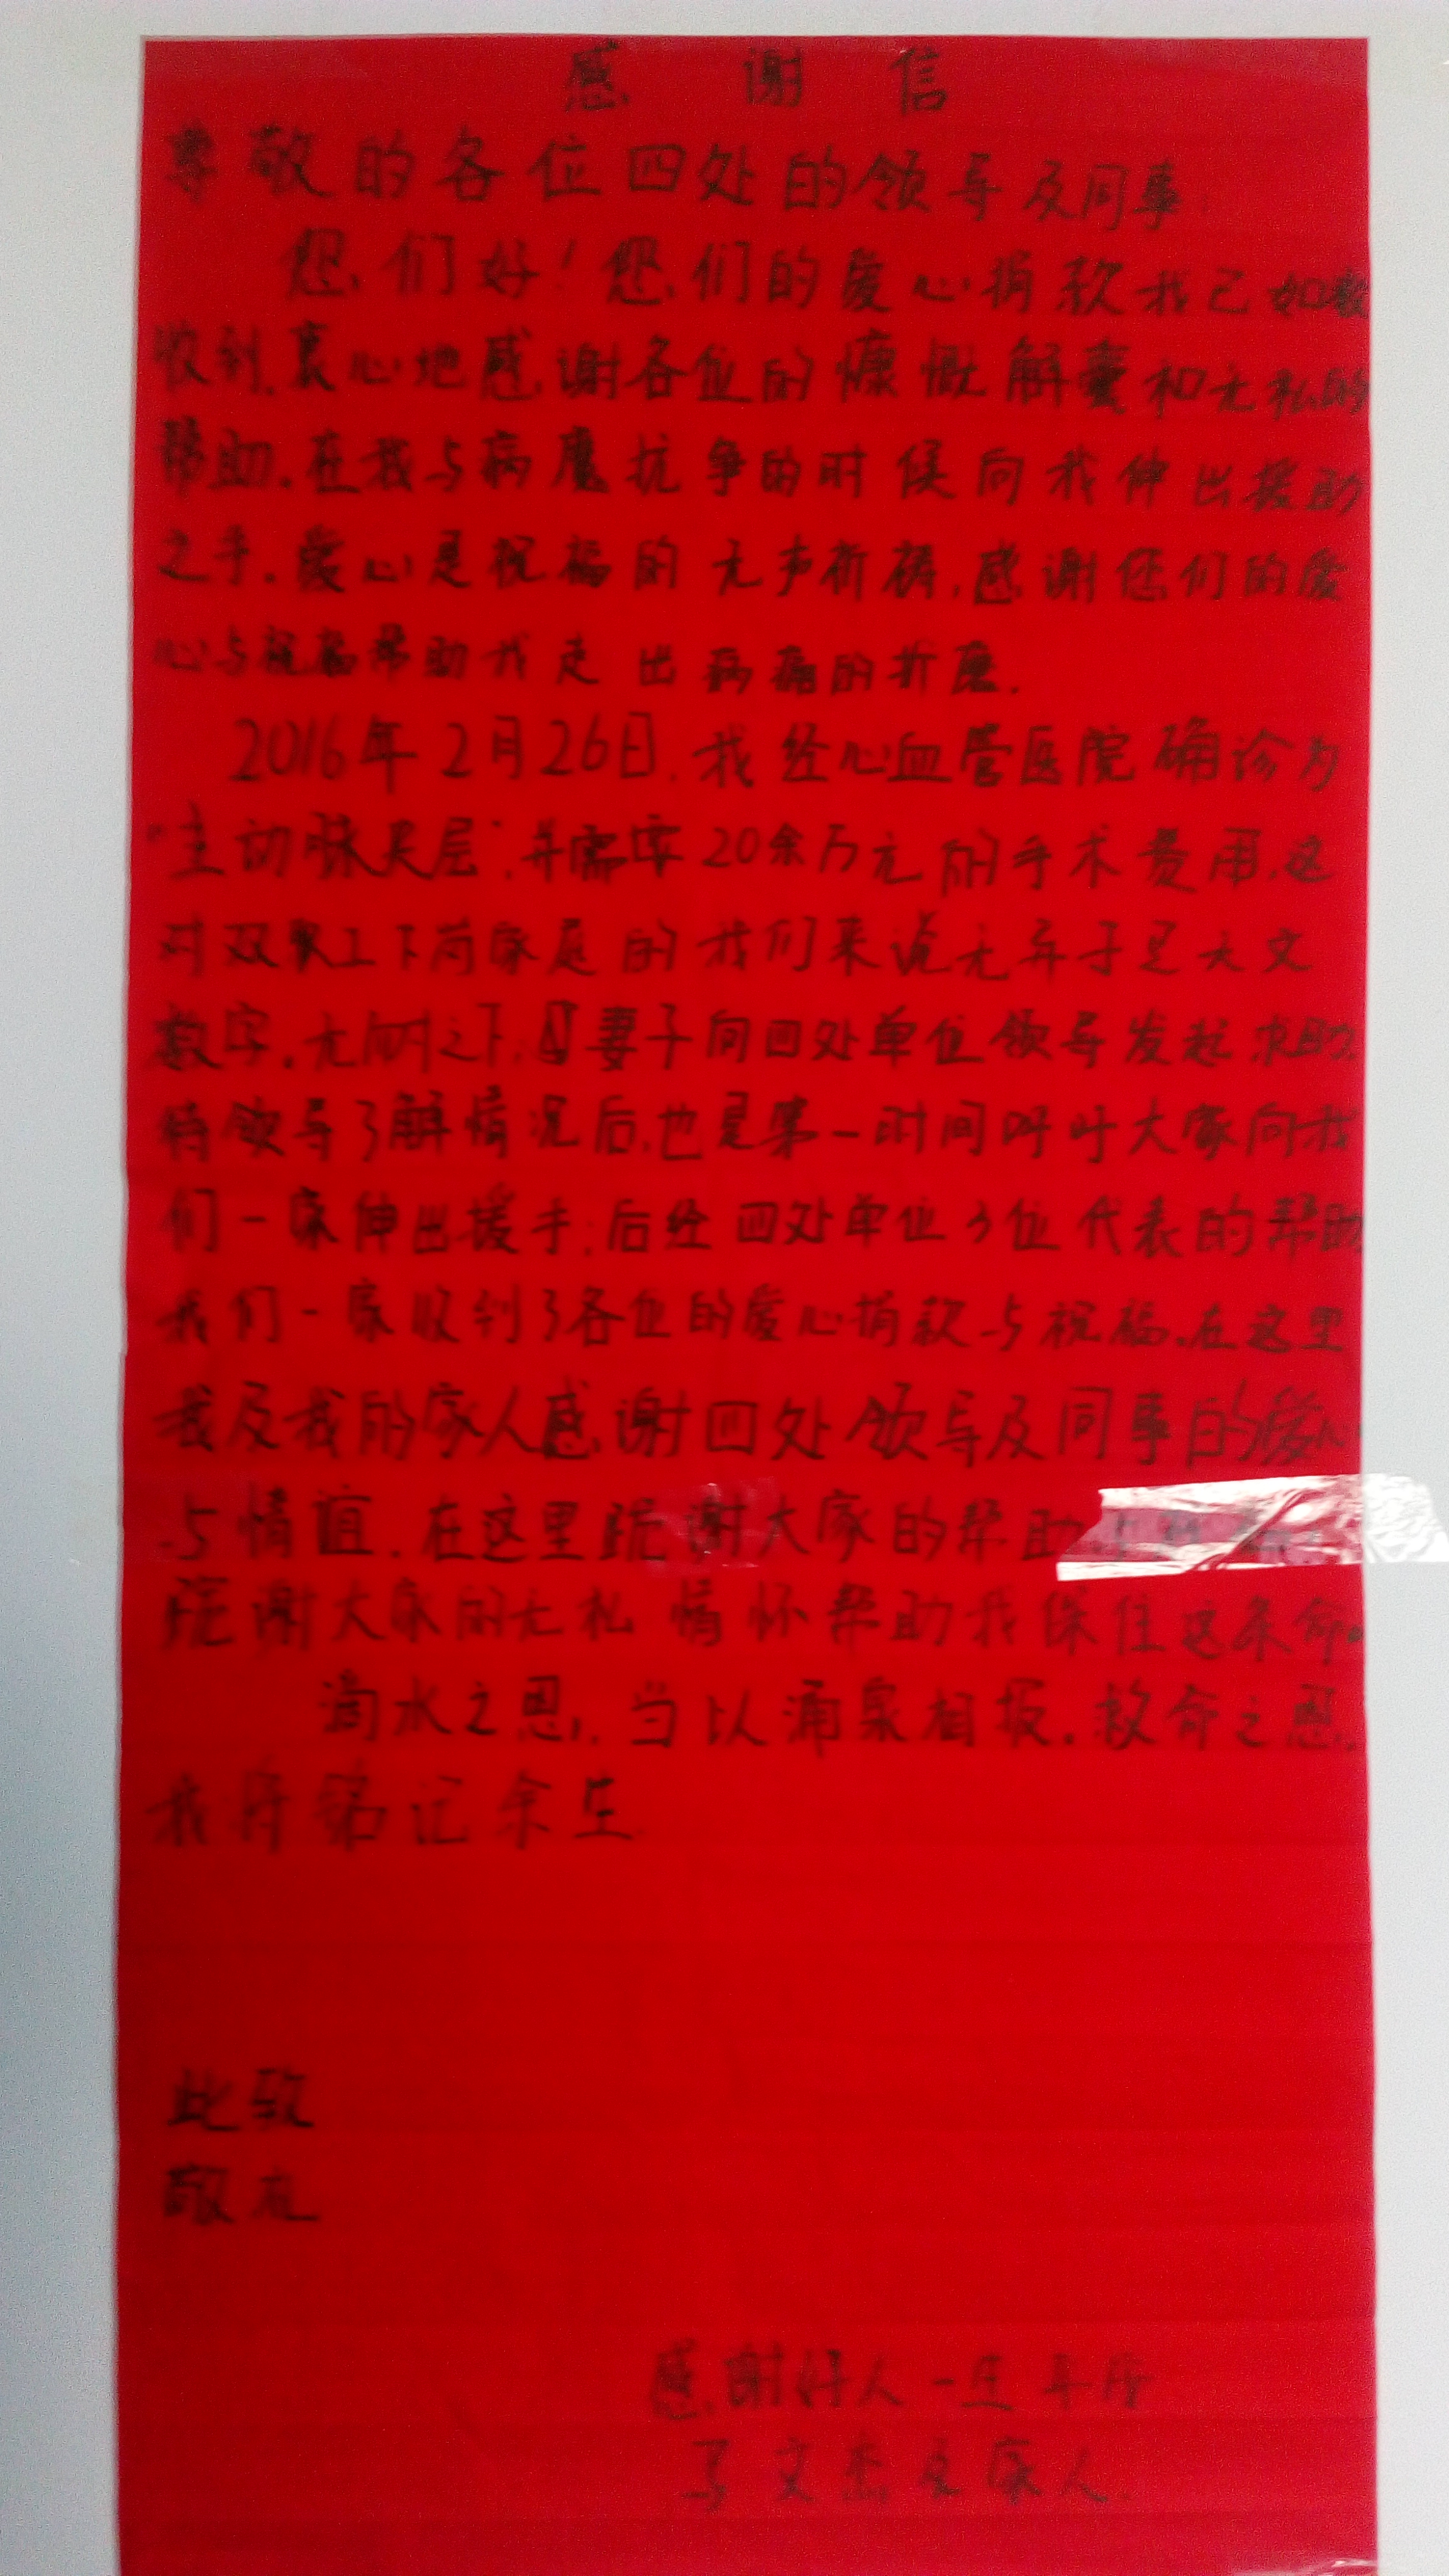 感谢信
尊敬的各位四处的领导及同事:
您们好!您们的爱心捐款我已如数
收到,衷心地感谢各位的慷慨解囊和无私的
帮助.在我与病魔抗争的时候向我伸出援助
之手.爱心是祝福的无声祈祷,感谢您们的爱
心与祝福帮助我走出病痛的折磨.
2016年2月26日.我经心血管医院确诊为
"主动脉夹层",并需要20余万元的手术费用.这
对双职工下岗家庭的我们来说无异于是天文
数字.无助之下,妻子向四处单位领导发起求助.
待领导了解情况后,也是第一时间呼吁大家向我
们一家伸出援手;后经四处单位3位代表的帮助
我们一家收到了各位的爱心捐款与祝福.在这里
我及我的家人感谢四处领导及同事的爱心
与情谊.在这里感谢大家的帮助
感谢大家的无私情怀帮助我保住这条命.
滴水之恩,当以涌泉相报.救命之恩,
我将铭记余生.
此致
敬礼
感谢好人一生平安
文杰及家人.